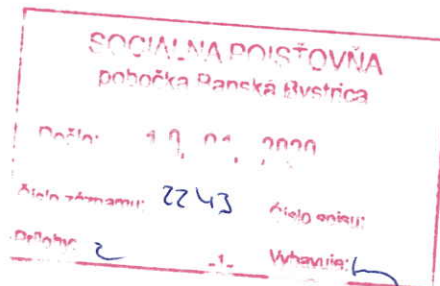 SOCIÁLNA POISŤOVŇA
pobočka Banská Bystrica
Došlo:
Číslo záznamu: 2243 Číslo spisu:
Prílohy: 2 -1- Vybavuje: